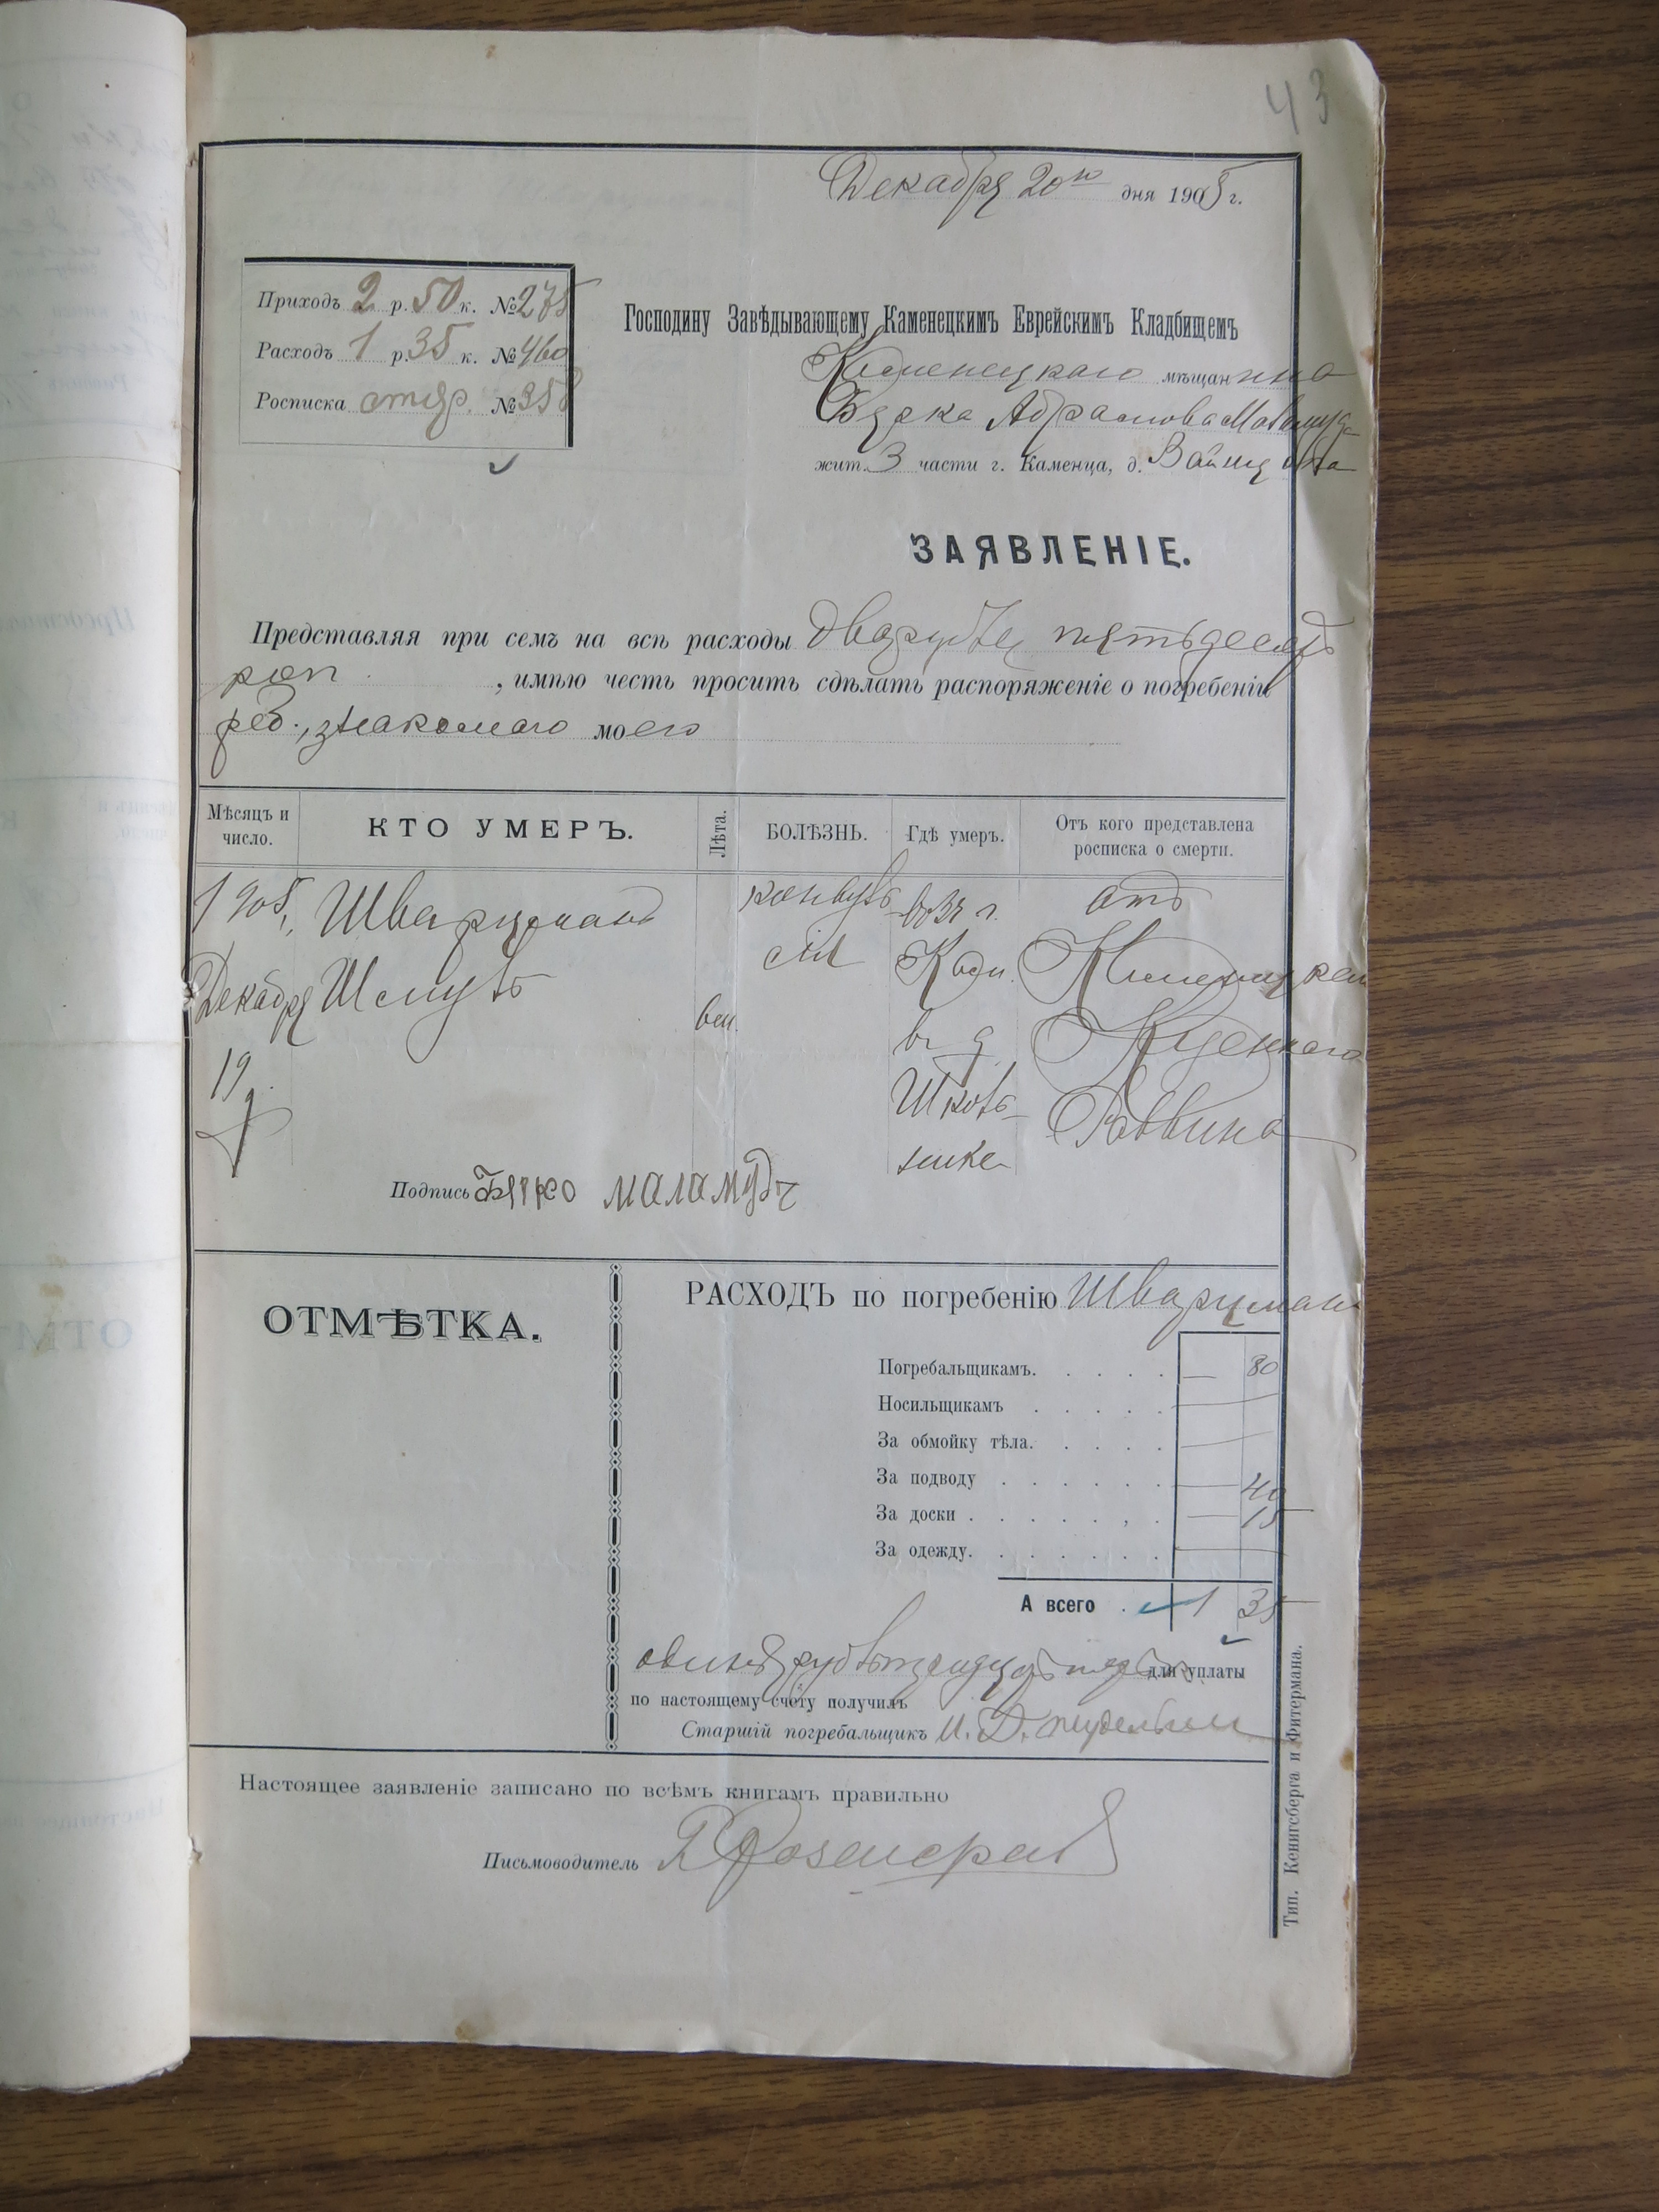 43
Декабря 20го дня 1905 г.
Приходъ 2 р. 50 к. № 275
Расходъ 1 р. 35 к. № 460
Росписка стар. № 358
Господину Завѣдывающему Каменецкимъ Еврейскимъ Кладбищемъ
Каменецкаго мѣщанина
Берка Абрамова Маламуда
жит. 3 части г. Каменца, д.
ЗАЯВЛЕНІЕ.
Представляя при семъ на всѣ расходы два рубля пятьдесятъ
коп , имѣю честь просить сдѣлать распоряженіе о погребеніи
реб., знакомаго моего
Мѣсяцъ и число.
КТО УМЕРЪ.
Лѣта.
БОЛѢЗНЬ.
Гдѣ умеръ.
Отъ кого представлена росписка о смерти.
1905, Шварцманъ конвуль- въ г. отъ
Декабря Шмуль сіи Кам. Каменецкаго
въ д. Казеннаго
19 Школь- Раввина
нике
Подпись Берко маламудъ
ОТМѢТКА.
РАСХОДЪ по погребенію Шварцман
Погребальщикамъ. — 80
Носильщикамъ —
За обмойку тѣла. —
За подводу — 40
За доски — 15
За одежду. —
А всего 1 35
одинъ рубль тридцать пять для уплаты
по настоящему счету получилъ
Старшій погребальщикъ И. Д.
Настоящее заявленіе записано по всѣмъ книгамъ правильно
Письмоводитель
Тип. Кенигсберга и Фитермана.